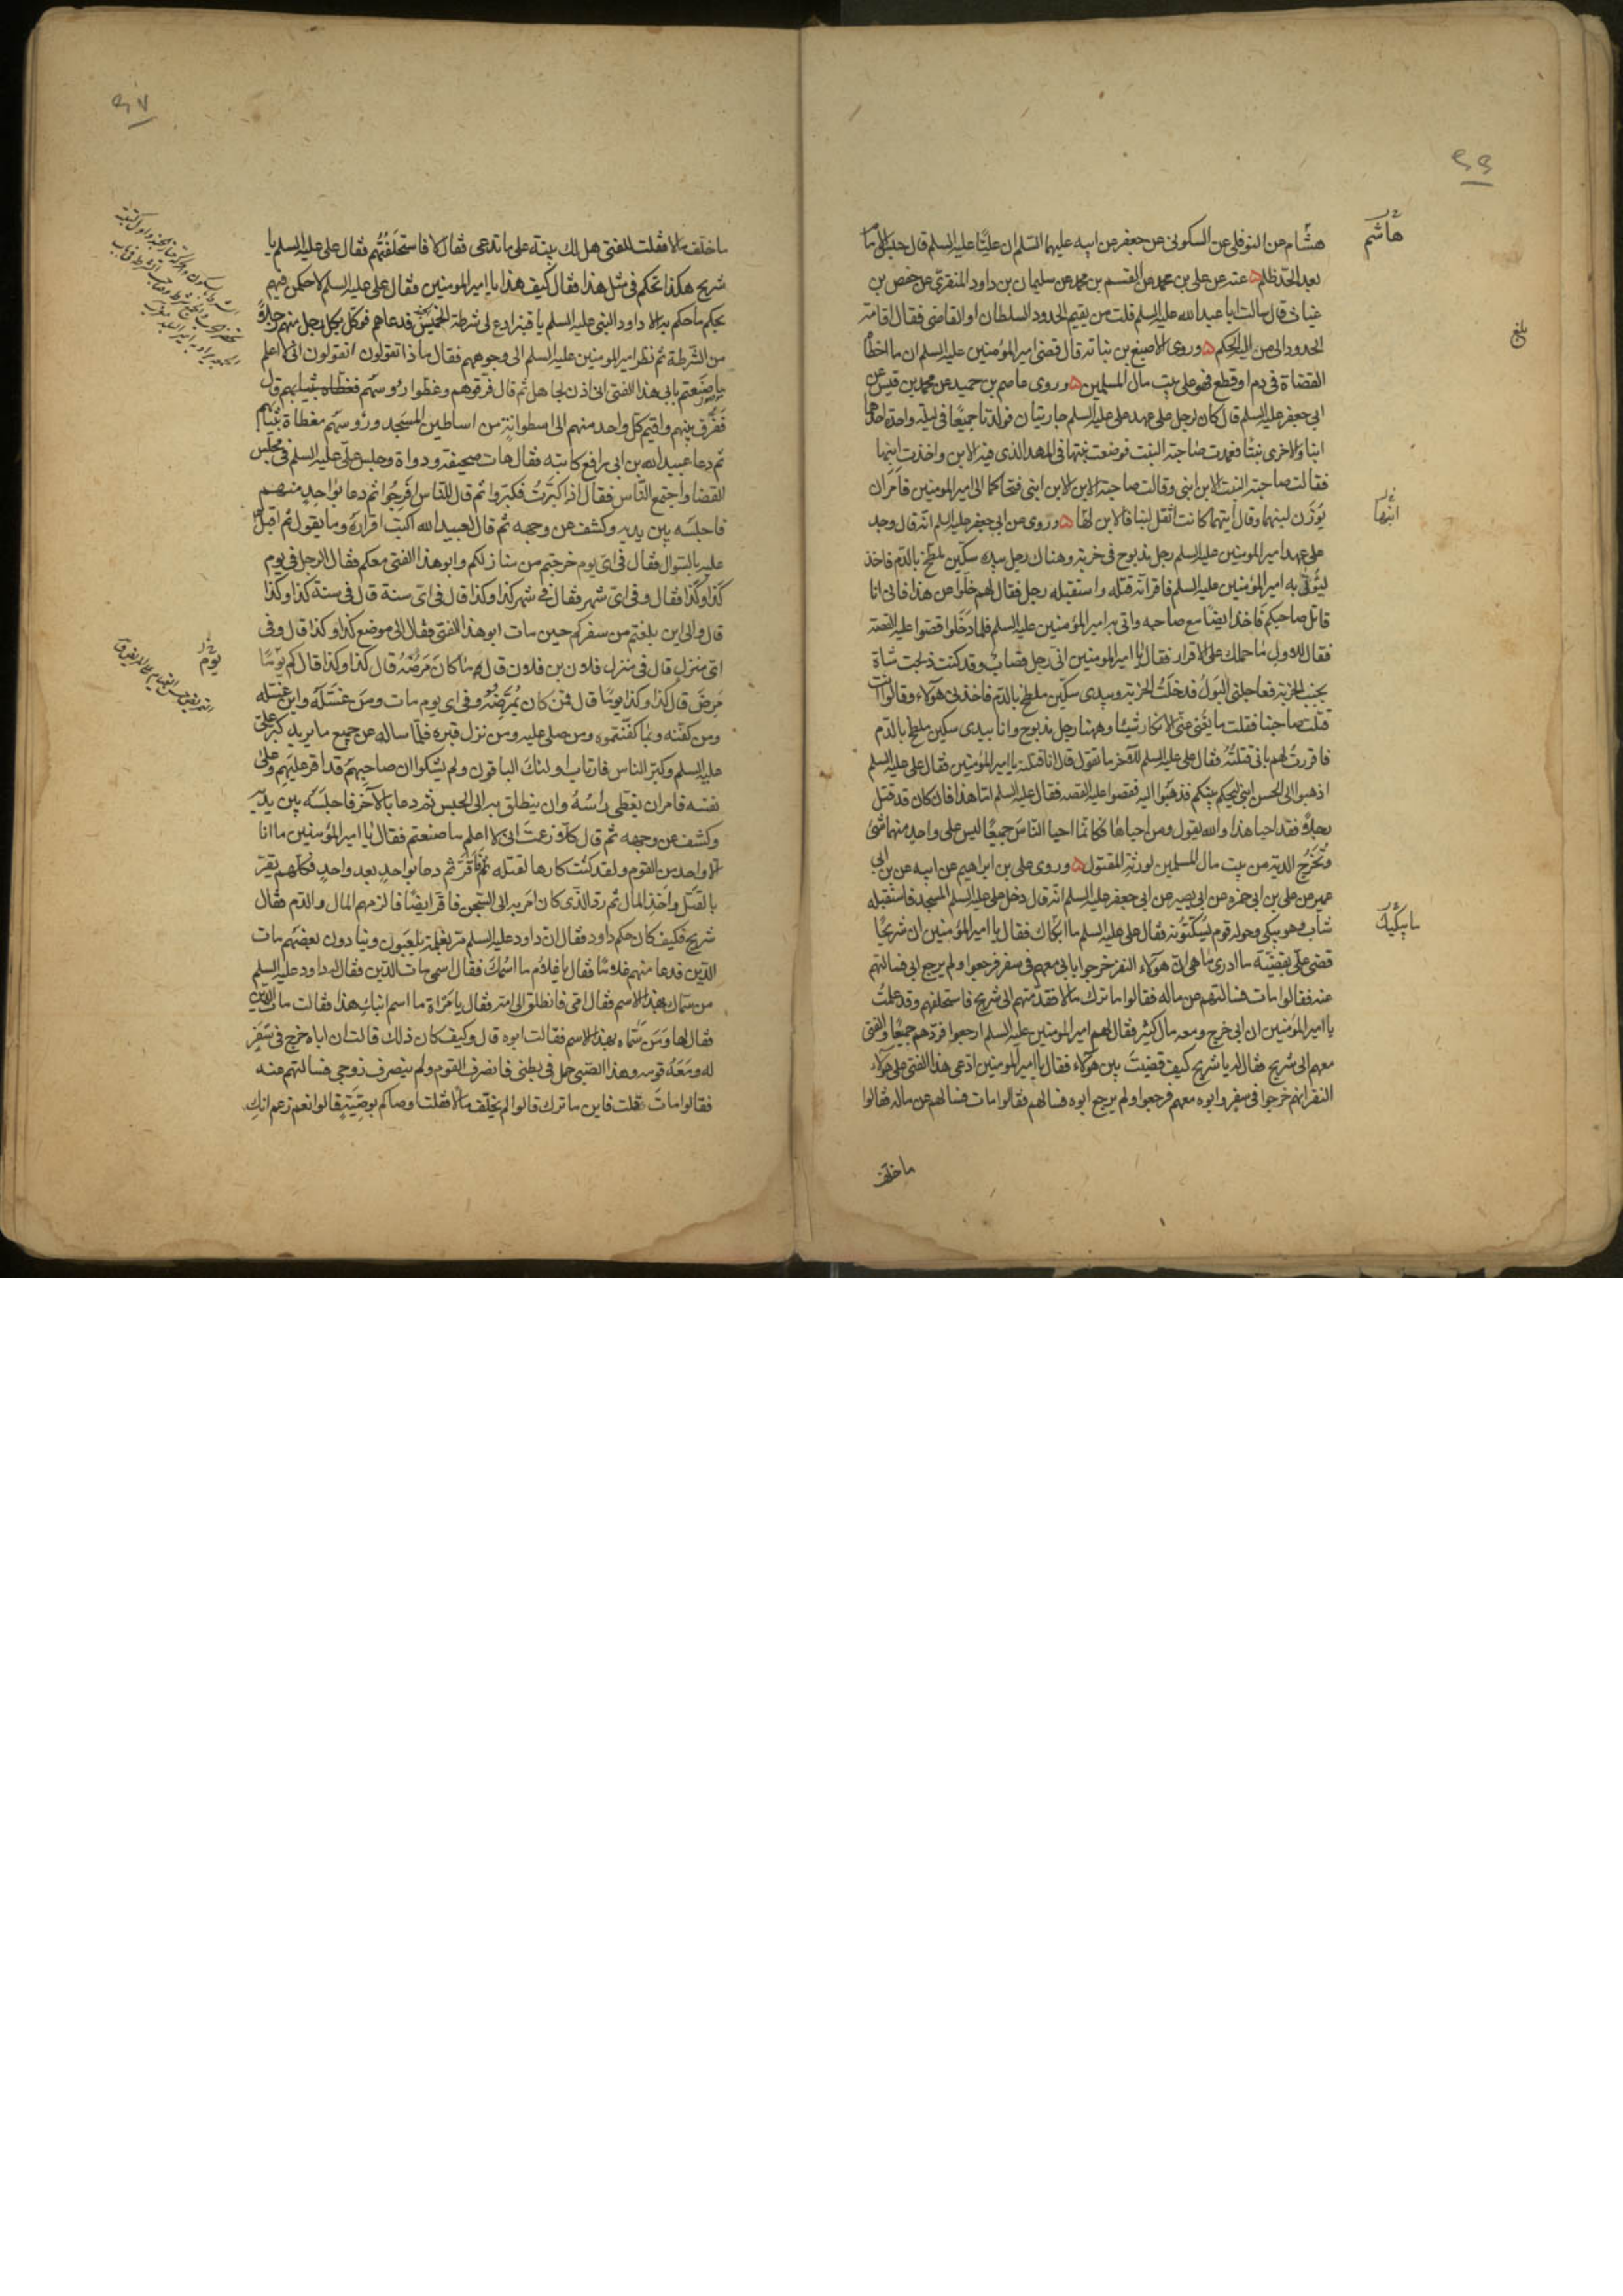 هشام عن النوفلى عن السكونى عن جعفر عن ابيه عليهما السلم ان عليّا عليه السلم قال حبس الامام
بعد الحدّ ظلم ه عنه عن على بن محمد عن القسم بن محمد عن سليمان بن داود المنقرى عن حفص بن
غياث قال سالت ابا عبد الله عليه السلم قلت من يقيم الحدود السلطان او القاضى فقال اقامة
الحدود الى من اليه الحكم ه وروى الاصبغ بن نباته قال قضى امير المؤمنين عليه السلم ان ما اخطأ
القضاة فى دم او قطع فهو على بيت مال المسلمين ه وروى عاصم بن حميد عن محمد بن قيس عن
ابى جعفر عليه السلم قال كان لرجل على عهد على عليه السلم جاريتان فولدتا جميعًا فى ليلة واحدة احداهما
ابنا والاخرى بنتا فعمدت صاحبة البنت فوضعت بنتها فى المهد الذى فيه الابن واخذت ابنها
فقالت صاحبة البنت الابن ابنى وقالت صاحبة الابن الابن ابنى فتحاكما الى امير المومنين فامر ان
يوزن لبنهما وقال ايتهما كانت اثقل لبنا فالابن لها ه وروى عن ابى جعفر عليه السلم انه قال وجد
على عهد امير المومنين عليه السلم رجل مذبوح فى خربة وهناك رجل بيده سكين ملطخ بالدم فاخذ
ليؤتى به امير المؤمنين عليه السلم فاقر انه قتله واستقبله رجل فقال لهم خلوا عن هذا فانى انا
قاتل صاحبكم فاخذ ايضا مع صاحبه واتى به امير المؤمنين عليه السلم فلما دخلوا قصوا عليه القصة
فقال للاول ما حملك على الاقرار فقال يا امير المومنين انى رجل قصاب وقد كنت ذبحت شاة
بجنب الخربة فعاجلنى البول فدخلت الخربة وبيدى سكين ملطخ بالدم فاخذنى هؤلاء وقالوا انت
قتلت صاحبنا فقلت ما يغنى عنى الانكار شيئا وههنا رجل مذبوح وانا بيدى سكين ملطخ بالدم
فاقررت لهم بانى قتلته فقال على عليه السلم للآخر ما تقول قال انا قتلته يا امير المؤمنين فقال على عليه السلم
اذهبوا الى الحسن ابنى ليحكم بينكم فذهبوا اليه فقصوا عليه القصه فقال عليه السلم اما هذا فان كان قد قتل
رجلا فقد احيا هذا والله يقول ومن احياها فكانما احيا الناس جميعًا ليس على واحد منهما شئ
وتخرج الدية من بيت مال المسلمين لورثة المقتول ه وروى على بن ابراهيم عن ابيه عن بن ابى
عمير عن على بن ابى حمزه عن ابى بصير عن ابى جعفر عليه السلم انه قال دخل على عليه السلم المسجد فاستقبله
شاب وهو يبكى وحوله قوم يسكتونه فقال على عليه السلم ما ابكاك فقال يا امير المؤمنين ان شريحًا
قضى علىّ بقضيّة ما ادرى ما هى ان هؤلاء النفر خرجوا بابى معهم فى سفر فرجعوا ولم يرجع ابى فسالتهم
عنه فقالوا مات فسالتهم عن ماله فقالوا ما ترك مالا فقدمتهم الى شريح فاستحلفهم وقد علمت
يا امير المؤمنين ان ابى خرج ومعه مال كثير فقال لهم امير المومنين عليه السلم ارجعوا فردّهم جميعًا والفتى
معهم الى شريح فقال له يا شريح كيف قضيت بين هؤلاء فقال يا امير المومنين ادعى هذا الفتى على هؤلاء
النفر انهم خرجوا فى سفر وابوه معهم فرجعوا ولم يرجع ابوه فسالتهم فقالوا مات فسالتهم عن ماله فقالوا
ما خلف
هاشم
بلغ
ابنها
ما يبكيك
ما خلف مالا فقلت للفتى هل لك بينة على ما تدعى فقال لا فاستحلفتهم فقال على عليه السلم يا
شريح هكذا تحكم فى مثل هذا فقال كيف هذا يا امير المومنين فقال على عليه السلم لاحكمن فيهم
بحكم ما حكم به الا داود النبى عليه السلم يا قنبر ادع لى شرطة الخميس فدعاهم فوكل بكل رجل منهم رجلا
من الشرطة ثم نظر امير المومنين عليه السلم الى وجوههم فقال ما ذا تقولون اتقولون انى لا اعلم
ما صنعتم بابى هذا الفتى انى اذن لجاهل ثم قال فرقوهم وغطوا رؤسهم قال
ففرق بينهم واقيم كل واحد منهم الى اسطوانة من اساطين المسجد ورؤسهم مغطاة بثيابهم
ثم دعا عبيد الله بن ابى رافع كاتبه فقال هات صحيفة ودواة وجلس على عليه السلم فى مجلس
القضا واجتمع الناس فقال اذا كبرت فكبروا ثم قال للناس افرجوا ثم دعا بواحد منهم
فاجلسه بين يديه وكشف عن وجهه ثم قال لعبيد الله اكتب اقراره وما يقول ثم اقبل
عليه بالسؤال فقال فى اى يوم خرجتم من منازلكم وابو هذا الفتى معكم فقال الرجل فى يوم
كذا وكذا فقال وفى اى شهر فقال فى شهر كذا وكذا قال فى اى سنة قال فى سنة كذا وكذا
قال والى اين بلغتم من سفركم حين مات ابو هذا الفتى فقال الى موضع كذا وكذا قال وفى
اى منزل قال فى منزل فلان بن فلان قال وما كان مرضه قال كذا وكذا قال كم يومًا
مرض قال كذا وكذا يومًا قال فمن كان يمرضه وفى اى يوم مات ومن غسله واين غسله
ومن كفنه وبما كفنتموه ومن صلى عليه ومن نزل قبره فلما ساله عن جميع ما يريد كبر على
عليه السلم وكبر الناس فارتاب اولئك الباقون ولم يشكوا ان صاحبهم قد اقر عليهم وعلى
نفسه فامر ان يغطى راسه وان ينطلق به الى الحبس ثم دعا بالآخر فاجلسه بين يديه
وكشف عن وجهه ثم قال كلا زعمت انى لا اعلم ما صنعتم فقال يا امير المؤمنين ما انا
الا واحد من القوم ولقد كنت كارها لقتله فاقر ثم دعا بواحد بعد واحد فكلهم يقر
بالقتل واخذ المال ثم رد الذى كان امر به الى السجن فاقر ايضًا فالزمهم المال والدم فقال
شريح فكيف كان حكم داود فقال ان داود عليه السلم مر بغلمة يلعبون وينادون بعضهم مات
الدين فدعا منهم غلامًا فقال يا غلام ما اسمك فقال اسمى مات الدين فقال له داود عليه السلم
من سماك بهذا الاسم فقال امى فانطلق الى امه فقال يا مراة ما اسم ابنك هذا فقالت مات الدين
فقال لها ومن سماه بهذا الاسم فقالت ابوه قال وكيف كان ذلك قالت ان اباه خرج فى سفر
له ومعه قوم وهذا الصبى حمل فى بطنى فانصرف القوم ولم ينصرف زوجى فسالتهم عنه
فقالوا مات قلت فاين ما ترك قالوا لم يخلف مالا فقلت اوصاكم بوصية قالوا نعم زعم انك
يوم